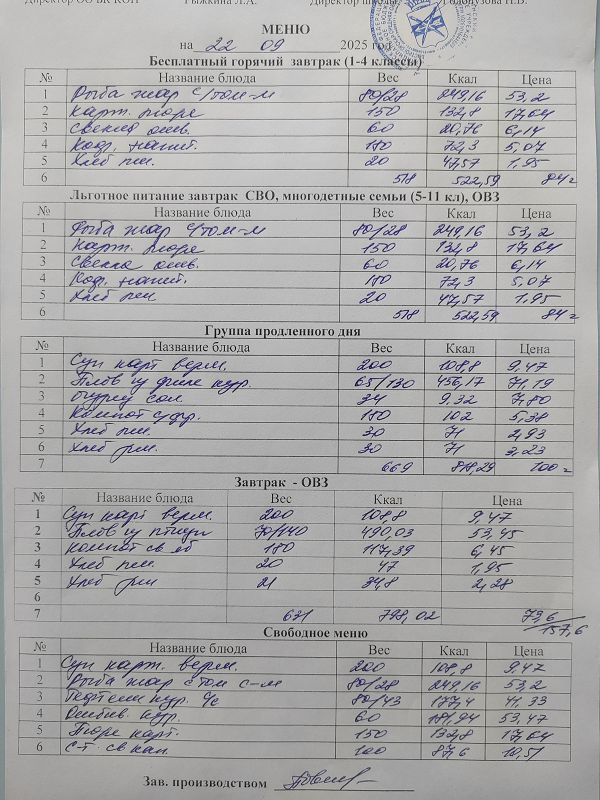 Директор ОО БК КОП Рыжкина Л.А. Директор школы Голопузова Н.В.
МЕНЮ
на 22 09 2025 год
Бесплатный горячий завтрак (1-4 классы)
№ Название блюда Вес Ккал Цена
1 Рыба жар с/том-м 80/28 249,16 53,2
2 Карт. пюре 150 132,8 17,64
3 Свекла отв. 60 20,76 6,14
4 Коф. напит. 180 72,3 5,07
5 Хлеб пш. 20 47,57 1,95
6 518 522,59 84=
Льготное питание завтрак СВО, многодетные семьи (5-11 кл), ОВЗ
№ Название блюда Вес Ккал Цена
1 Рыба жар с/том-м 80/28 249,16 53,2
2 Карт. пюре 150 132,8 17,64
3 Свекла отв. 60 20,76 6,14
4 Коф. напит. 180 72,3 5,07
5 Хлеб пш 20 47,57 1,95
6 518 522,59 84=
Группа продленного дня
№ Название блюда Вес Ккал Цена
1 Суп карт верм. 200 108,8 9,47
2 Плов из филе кур. 65/130 456,17 71,19
3 Огурец сол. 34 9.32 7,80
4 Компот сухфр. 180 102 5,38
5 Хлеб пш. 30 71 2,93
6 Хлеб рж. 30 71 3,23
7 669 818,29 100=
Завтрак - ОВЗ
№ Название блюда Вес Ккал Цена
1 Суп карт верм. 200 108,8 9,47
2 Плов из птицы 70/140 490,03 53,45
3 компот св яб 180 117,39 6,45
4 Хлеб пш. 20 47 1,95
5 Хлеб рж 21 34,8 2,28
6
7 631 798,02 73,6
157,6
Свободное меню
№ Название блюда Вес Ккал Цена
1 Суп карт. верм. 200 108,8 9,47
2 Рыба жар с том с-м 80/28 249,16 53,2
3 кур. 80/43 177,4 41.33
4 Отбив. кур. 60 181,94 53,47
5 Пюре карт. 150 132,8 17,64
6 С-т св кап. 100 87,6 10,51
Зав. производством